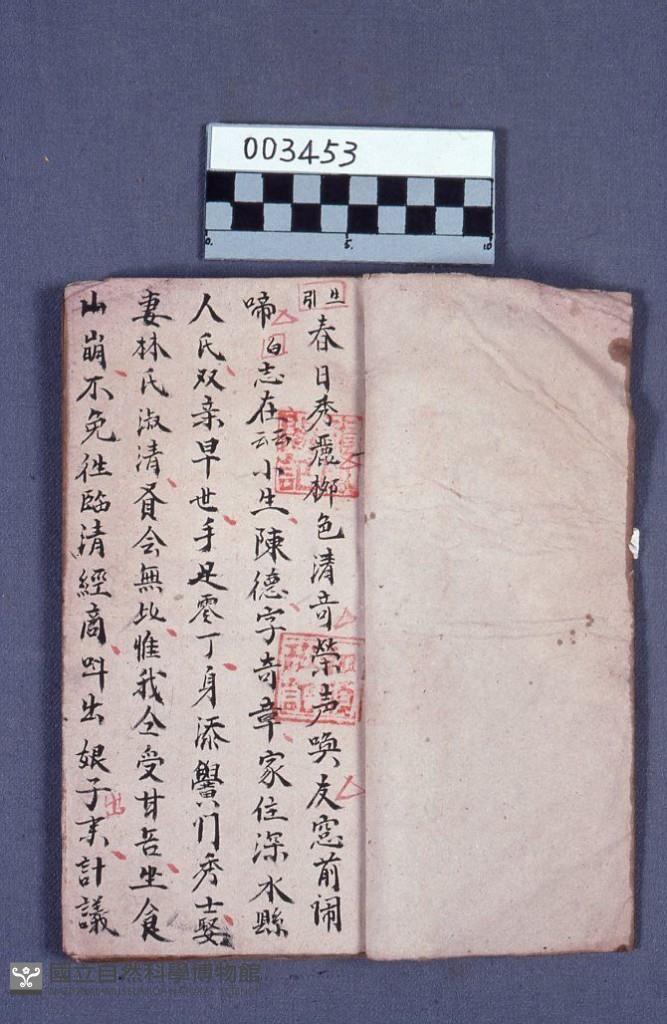 003453
0. 5. 10
生引
春日秀麗柳色清奇鶯声喚友窓前闹
啼白志在云小生陳德字奇章家住深水縣
人氏双亲早世手足零丁身添黌门秀士娶
妻林氏淑清會無此惟我仝受甘苦坐食
山崩不免往臨清經商叫出娘子来計議
出
國立自然科學博物館